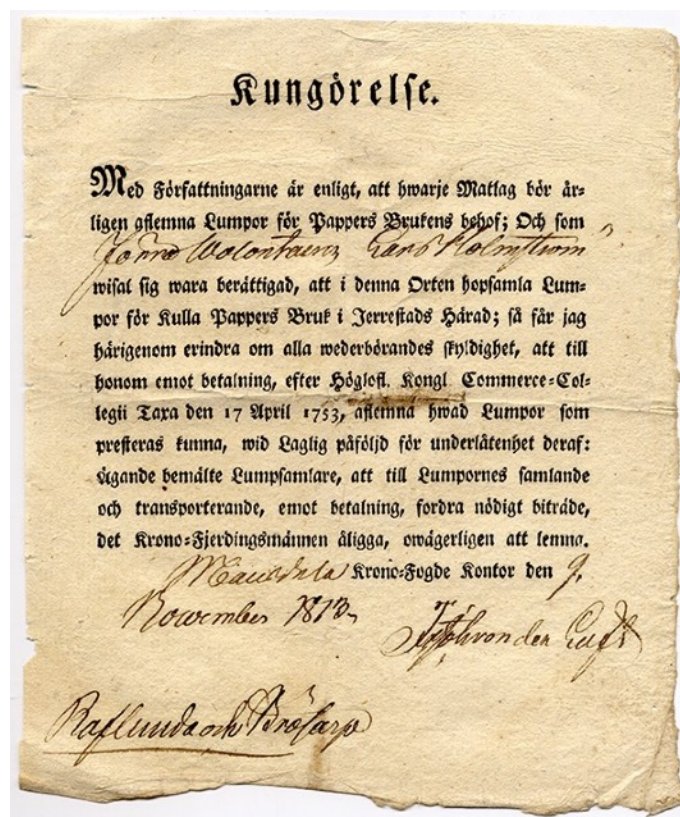 Kungörelse.
Med Författningarne är enligt, att hwarje Matlag bör år-
ligen aflemna Lumpor för Pappers Brukens behof; Och som
Lars Holmström
wisat sig wara berättigad, att i denna Orten hopsamla Lum-
por för Kulla Pappers Bruk i Jerrestads Härad; så får jag
härigenom erindra om alla wederbörandes skyldighet, att till
honom emot betalning, efter Höglofl. Kongl. Commerce-Col-
legii Taxa den 17 April 1753, aflemna hwad Lumpor som
presteras kunna, wid Laglig påföljd för underlåtenhet deraf:
Ägande bemälte Lumpsamlare, att till Lumpornes samlande
och transporterande, emot betalning, fordra nödigt biträde,
det Krono-Fjerdingsmännen åligga, owägerligen att lemna.
Krono-Fogde Kontor den 9.
November 1813.
Raflunda och Brösarp